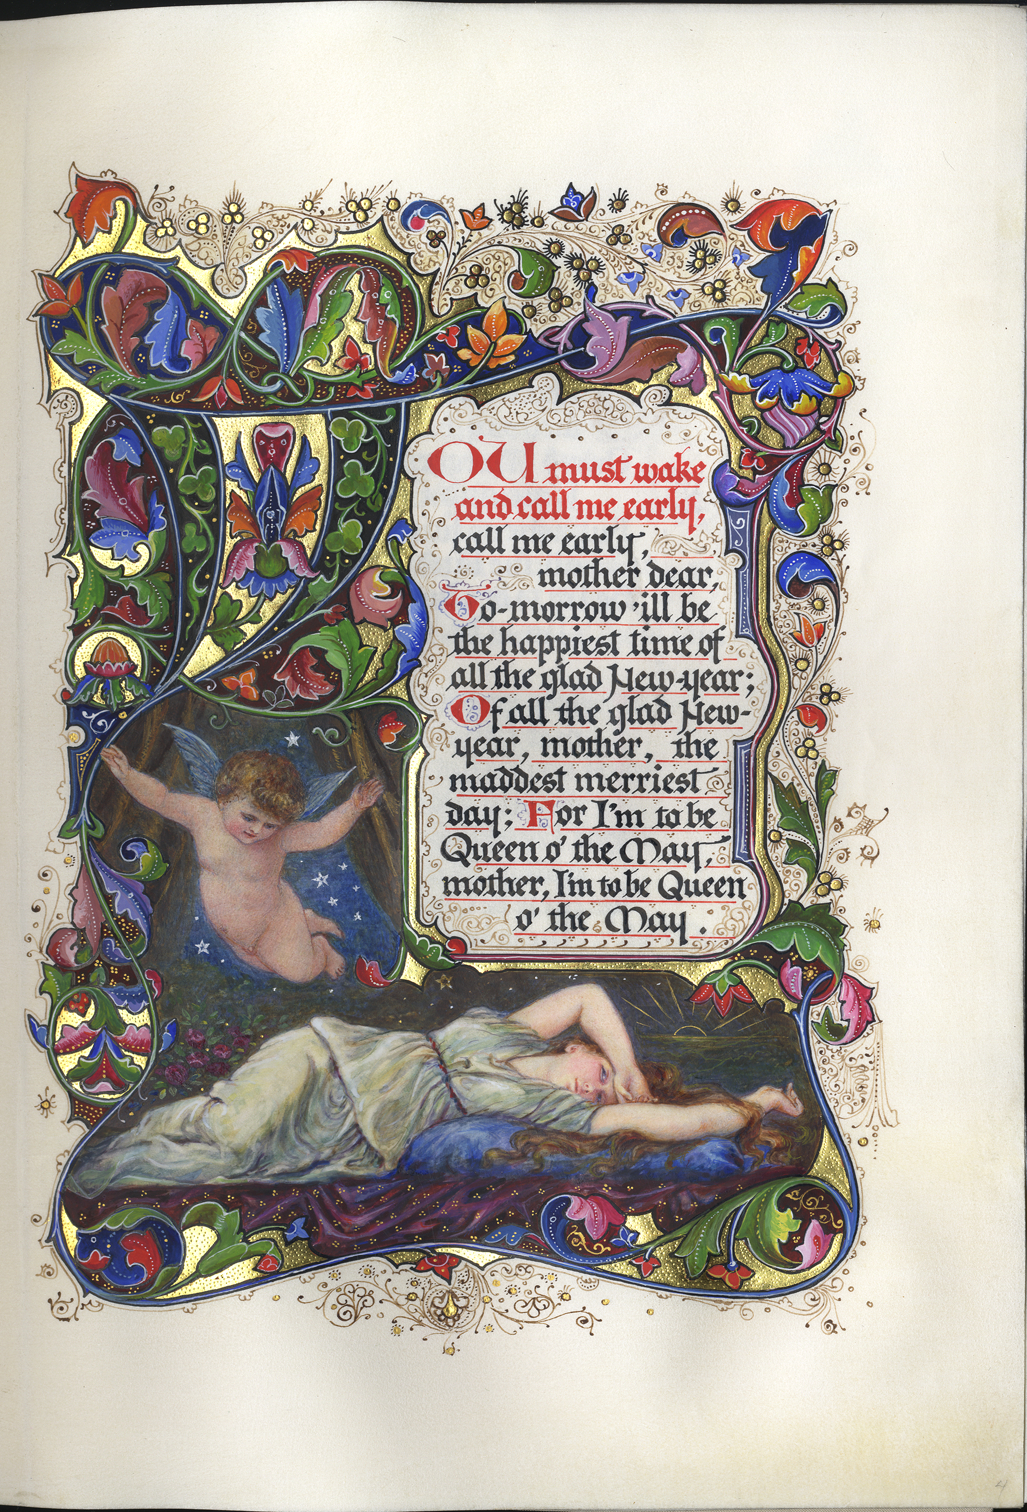 YOU must wake
and call me early,
call me early,
mother dear,
To-morrow 'ill be
the happiest time of
all the glad New-year;
Of all the glad New-
year, mother, the
maddest merriest
day; For I'm to be
Queen o' the May,
mother, I'm to be Queen
o' the May.